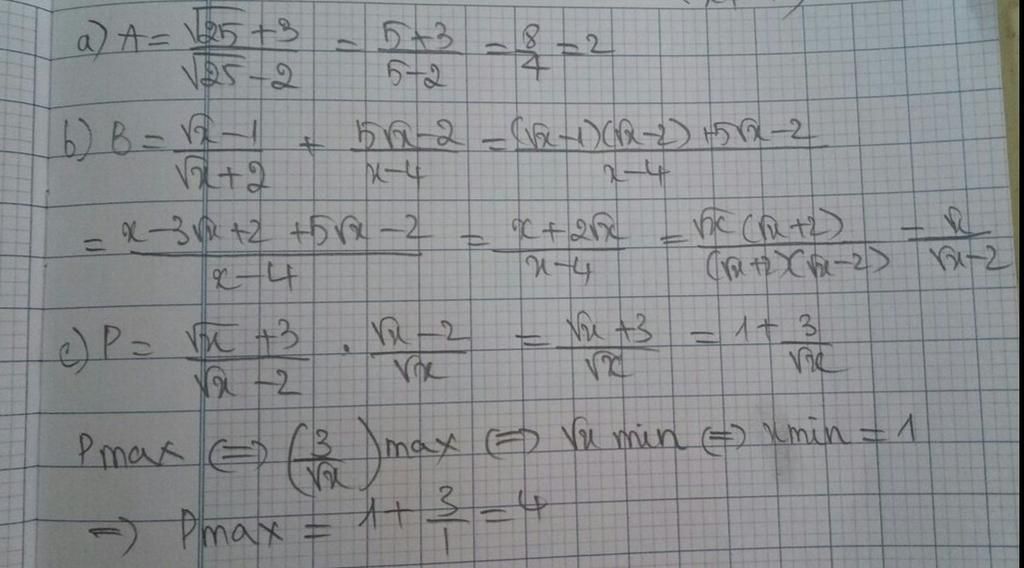 a) A = (√25 + 3)/(√25 - 2) = (5+3)/(5-2) = 8/4 = 2
b) B = (√x - 1)/(√x + 2) + (5√x - 2)/(x - 4) = ((√x - 1)(√x - 2) + 5√x - 2)/(x - 4)
= (x - 3√x + 2 + 5√x - 2)/(x - 4) = (x + 2√x)/(x - 4) = (√x (√x + 2))/((√x + 2)(√x - 2)) = √x/(√x - 2)
c) P = (√x + 3)/(√x - 2) . (√x - 2)/√x = (√x + 3)/√x = 1 + 3/√x
Pmax ⇔ (3/√x) max ⇔ √x min ⇔ xmin = 1
⇒ Pmax = 1 + 3/1 = 4